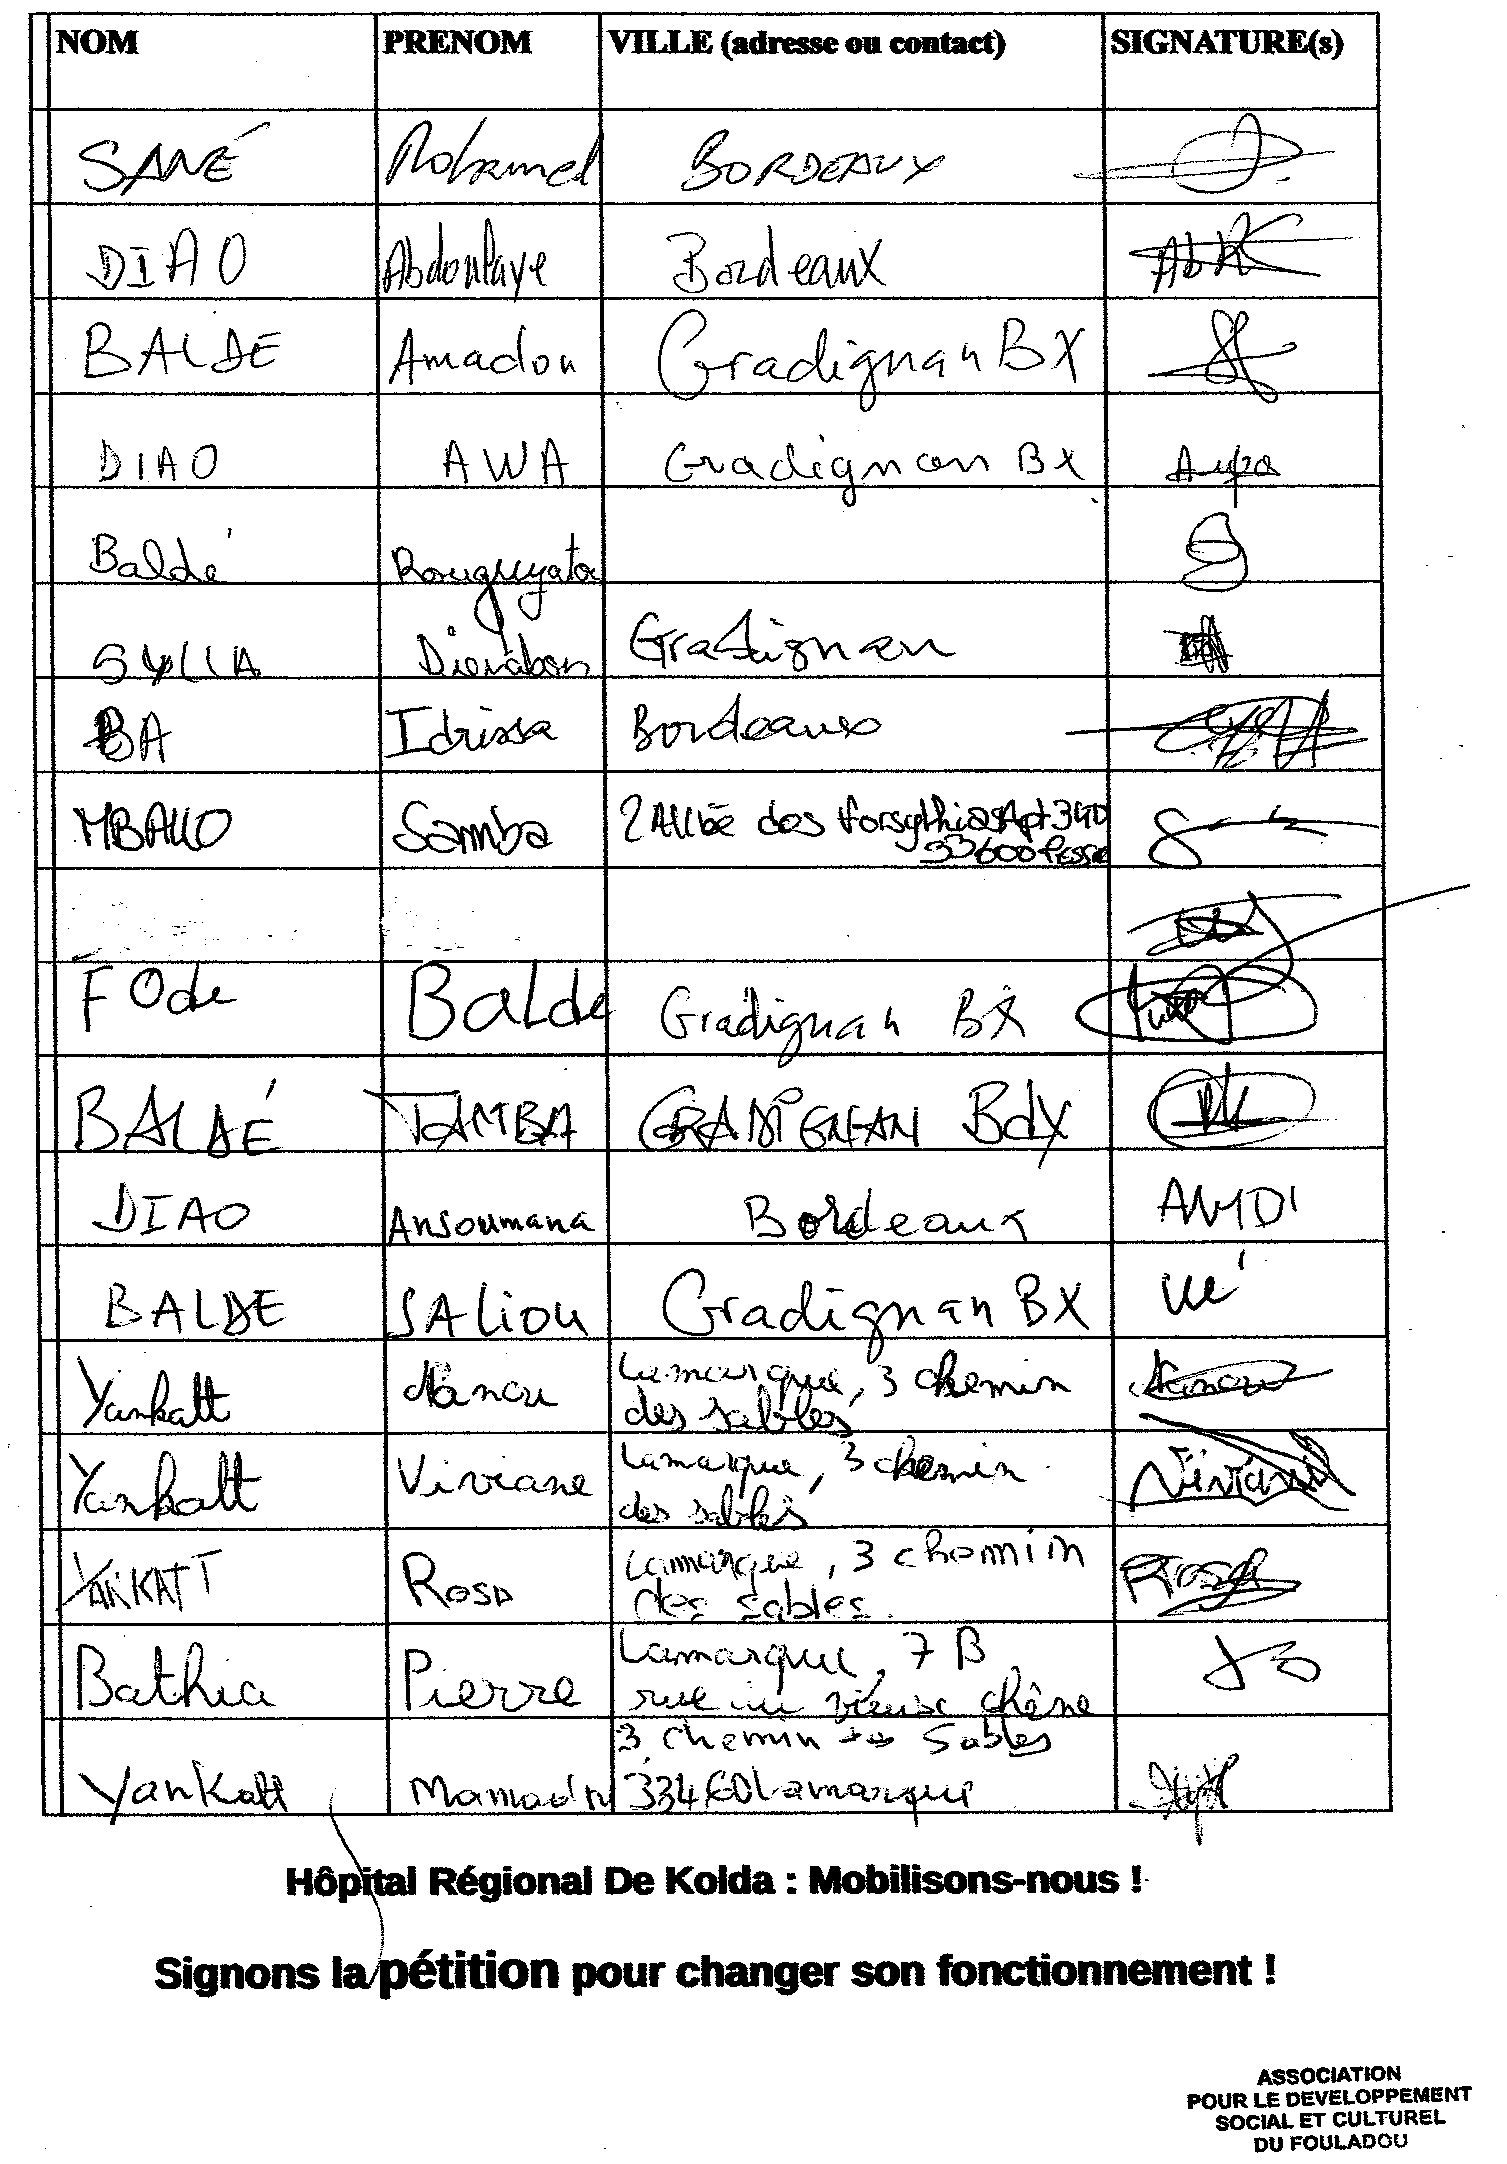 NOM PRENOM VILLE (adresse ou contact) SIGNATURE(s)
SANÉ Mohamed BORDEAUX
DIAO Abdoulaye Bordeaux
BALDE Amadou Gradignan BX
DIAO AWA Gradignan BX Awa
Baldé Rouguyata
SYLLA Gradignan
BA Idrissa Bordeaux
MBALLO Samba 2 Allée des forsythias Apt 340
33600 Pessac
FOde BaLde Gradignan BX
BALDÉ TAMBA GRADIGNAN BdX
DIAO Ansoumana Bordeaux AMDI
BALDE SALiou Gradignan BX
Yankatt Nanou Lamarque, 3 chemin
des sables Nanou
Yankatt Viviane Lamarque, 3 chemin
des sables Viviane
YANKATT Rosa Lamarque, 3 chemin
des sables. Rosa
Bathia Pierre Lamarque, 7 B
rue du vieux chêne
3 chemin des Sables
Yankatt Mamadu 33460 Lamarque
Hôpital Régional De Kolda : Mobilisons-nous !
Signons la pétition pour changer son fonctionnement !
ASSOCIATION
POUR LE DEVELOPPEMENT
SOCIAL ET CULTUREL
DU FOULADOU